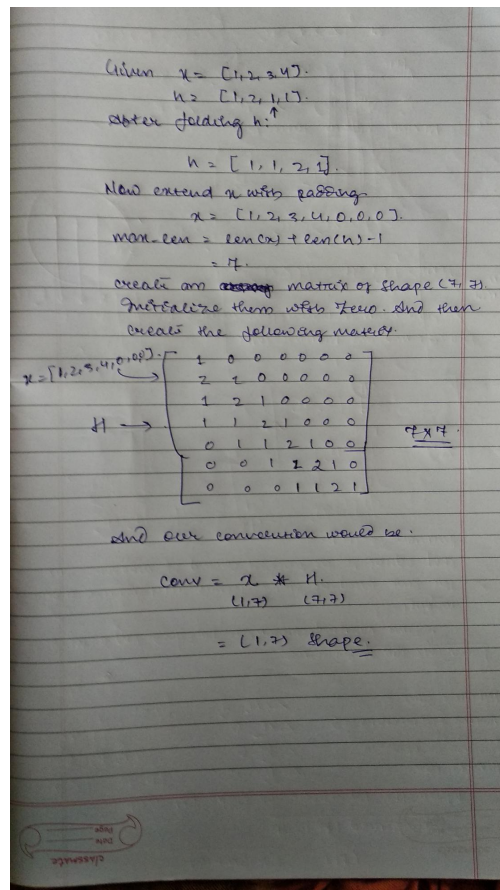 Given x = [1,2,3,4].
h = [1,2,1,1].
After folding h:↑
h = [1,1,2,1].
Now extend x with padding
x = [1,2,3,4,0,0,0].
max-len = len(x) + len(h) - 1
= 7.
create an matrix of shape (7,7).
Initialize them with zero. And then
create the following matrix.
x = [1,2,3,4,0,0,0].
1 0 0 0 0 0 0
2 1 0 0 0 0 0
1 2 1 0 0 0 0
H → 1 1 2 1 0 0 0
0 1 1 2 1 0 0 7x7
0 0 1 1 2 1 0
0 0 0 1 1 2 1
And our convolution would be.
conv = x * H.
(1,7) (7,7)
= (1,7) shape.
classmate
Date
Page